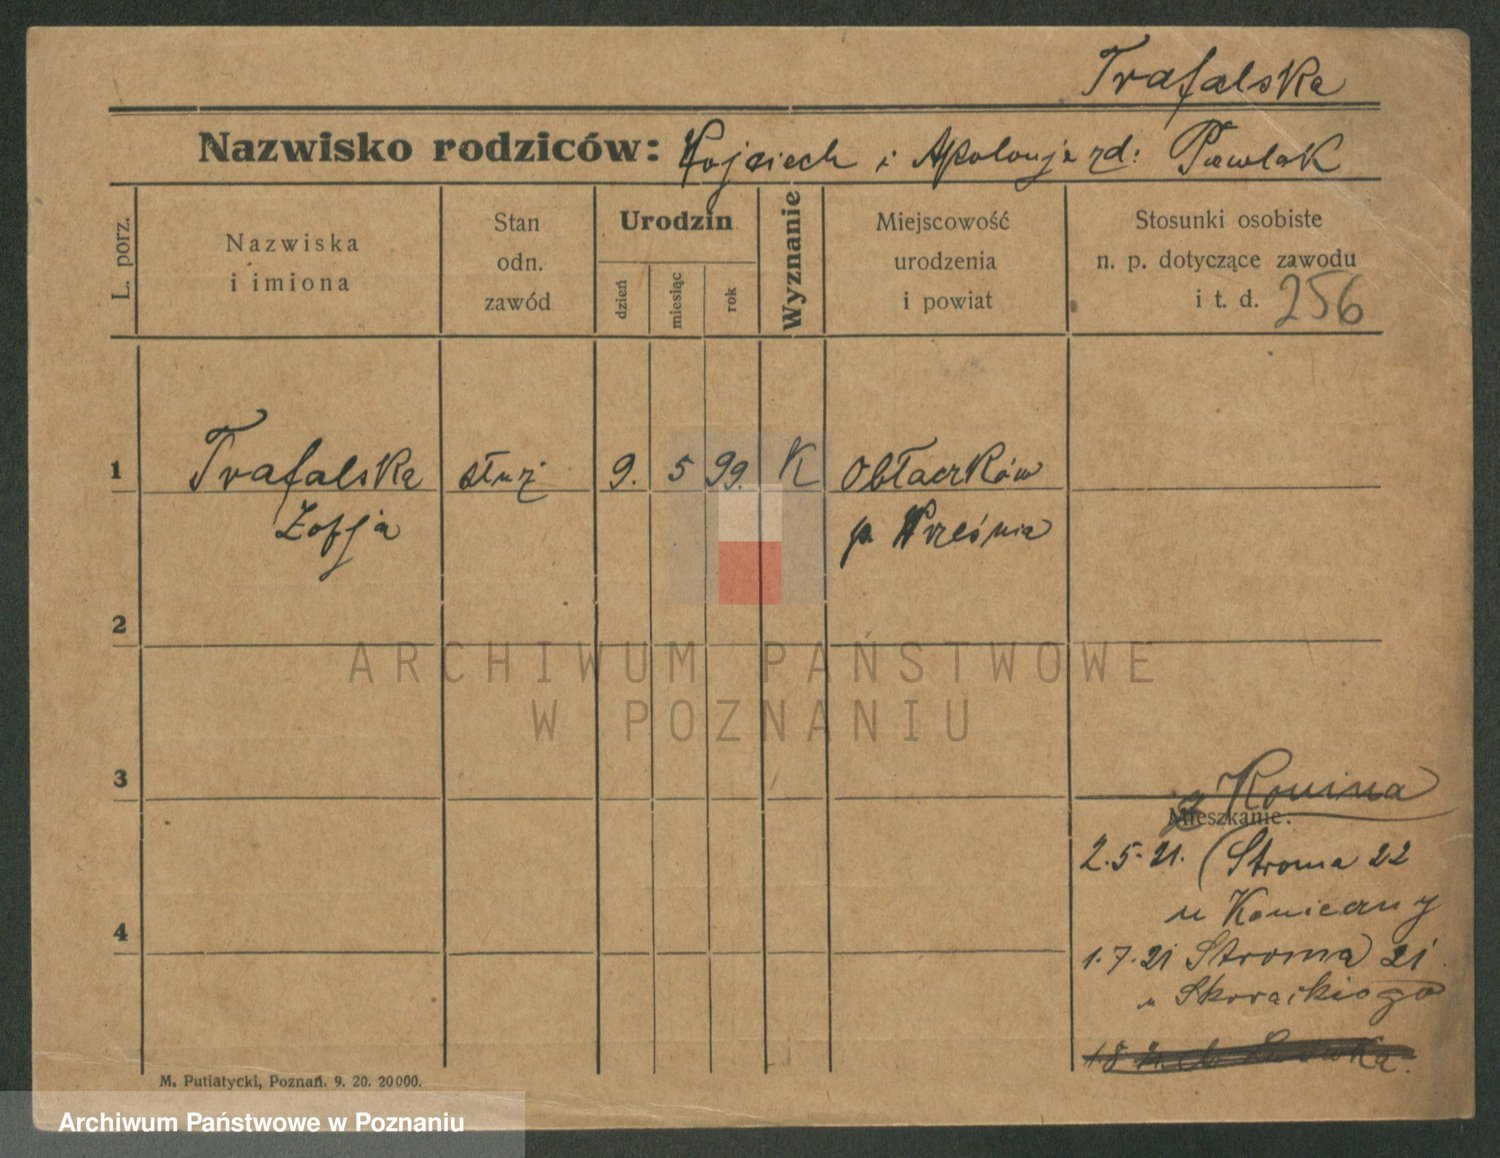 Trafalska
Nazwisko rodziców: Wojciech i Apolonja zd: Pawlak
L. porz.
Nazwiska
i imiona
Stan
odn.
zawód
Urodzin
dzień
miesiąc
rok
Wyznanie
Miejscowość
urodzenia
i powiat
Stosunki osobiste
n. p. dotyczące zawodu
i t. d. 256
1 Trafalska służ 9. 5 99. K Obłaczków
Zofja p. Września
2
ARCHIWUM PAŃSTWOWE
W POZNANIU
3
z Konina
Mieszkanie:
2.5.21. (Stroma 22
u Konieczny
4
1.7.21 Stroma 21
u Skorackiego
M. Putiatycki, Poznań. 9. 20. 20000.
Archiwum Państwowe w Poznaniu